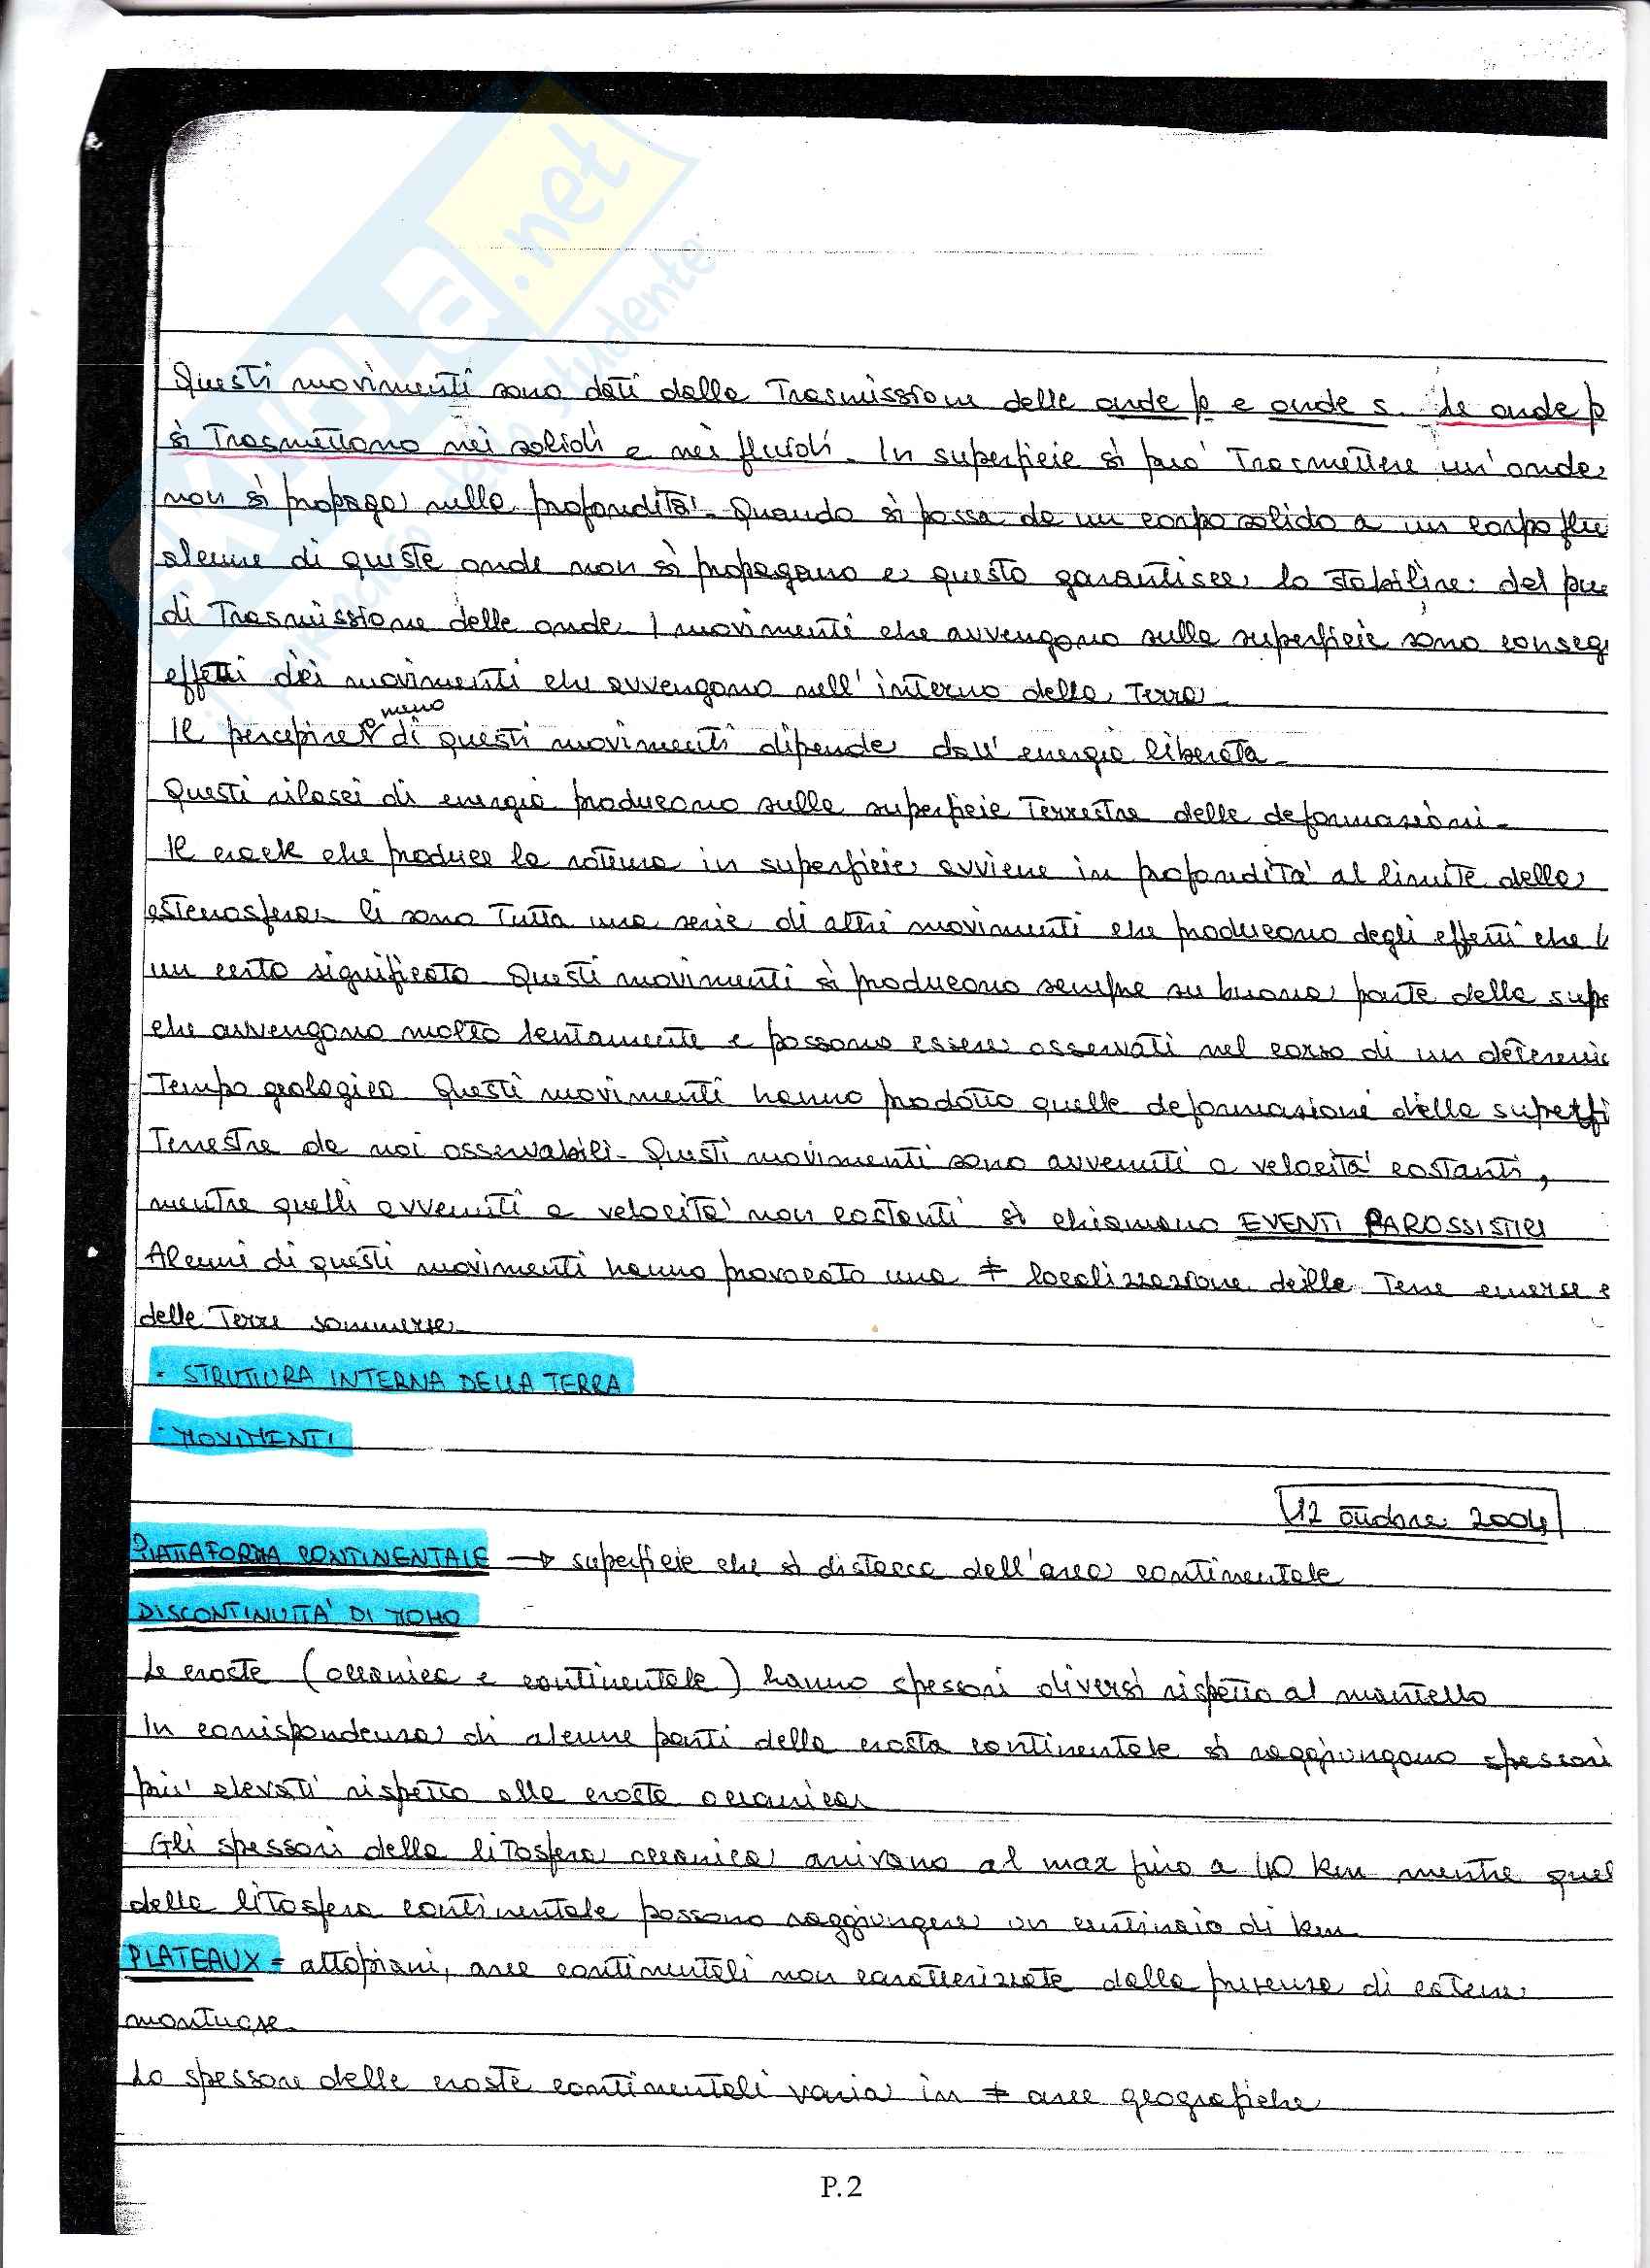 Questi movimenti sono dati dalla Trasmissione delle onde p e onde s. Le onde p
si Trasmettono nei solidi e nei fluidi. In superficie si può Trasmettere un'onda
non si propaga nella profondità. Quando si passa da un corpo solido a un corpo flu
alcune di queste onde non si propagano e questo garantisce la del
di Trasmissione delle onde. I movimenti che avvengono sulla superficie sono conseg
effetti dei movimenti che avvengono nell'interno della Terra.
Il percepire o meno di questi movimenti dipende dall'energia liberata.
Questi rilasci di energia producono sulla superficie Terrestre delle deformazioni.
Il crack che produce la rottura in superficie avviene in profondità al limite della
astenosfera. Ci sono Tutta una serie di altri movimenti che producono degli effetti che
un certo significato. Questi movimenti si producono sempre su buona parte della supe
che avvengono molto lentamente e possono essere osservati nel corso di un determin
Tempo geologico. Questi movimenti hanno prodotto quelle deformazioni della superfi
Terrestre da noi osservabili. Questi movimenti sono avvenuti a velocità costanti,
mentre quelli avvenuti a velocità non costanti si chiamano EVENTI PAROSSISTICI
Alcuni di questi movimenti hanno provocato una ≠ localizzazione delle Terre emerse e
delle Terre sommerse.
· STRUTTURA INTERNA DELLA TERRA
· MOVIMENTI
12 ottobre 2004
PIATTAFORMA CONTINENTALE → superficie che si distacca dall'area continentale
DISCONTINUITA' DI MOHO
Le croste (oceanica e continentale) hanno spessori diversi rispetto al mantello
In corrispondenza di alcune parti della crosta continentale si raggiungono spessori
più elevati rispetto alla crosta oceanica.
Gli spessori della litosfera oceanica arrivano al max fino a 40 km mentre quel
della litosfera continentale possono raggiungere un centinaio di km.
PLATEAUX = altopiani, aree continentali non caratterizzate dalla presenza di catene
montuose.
Lo spessore delle croste continentali varia in ≠ aree geografiche
P.2
.net
studente